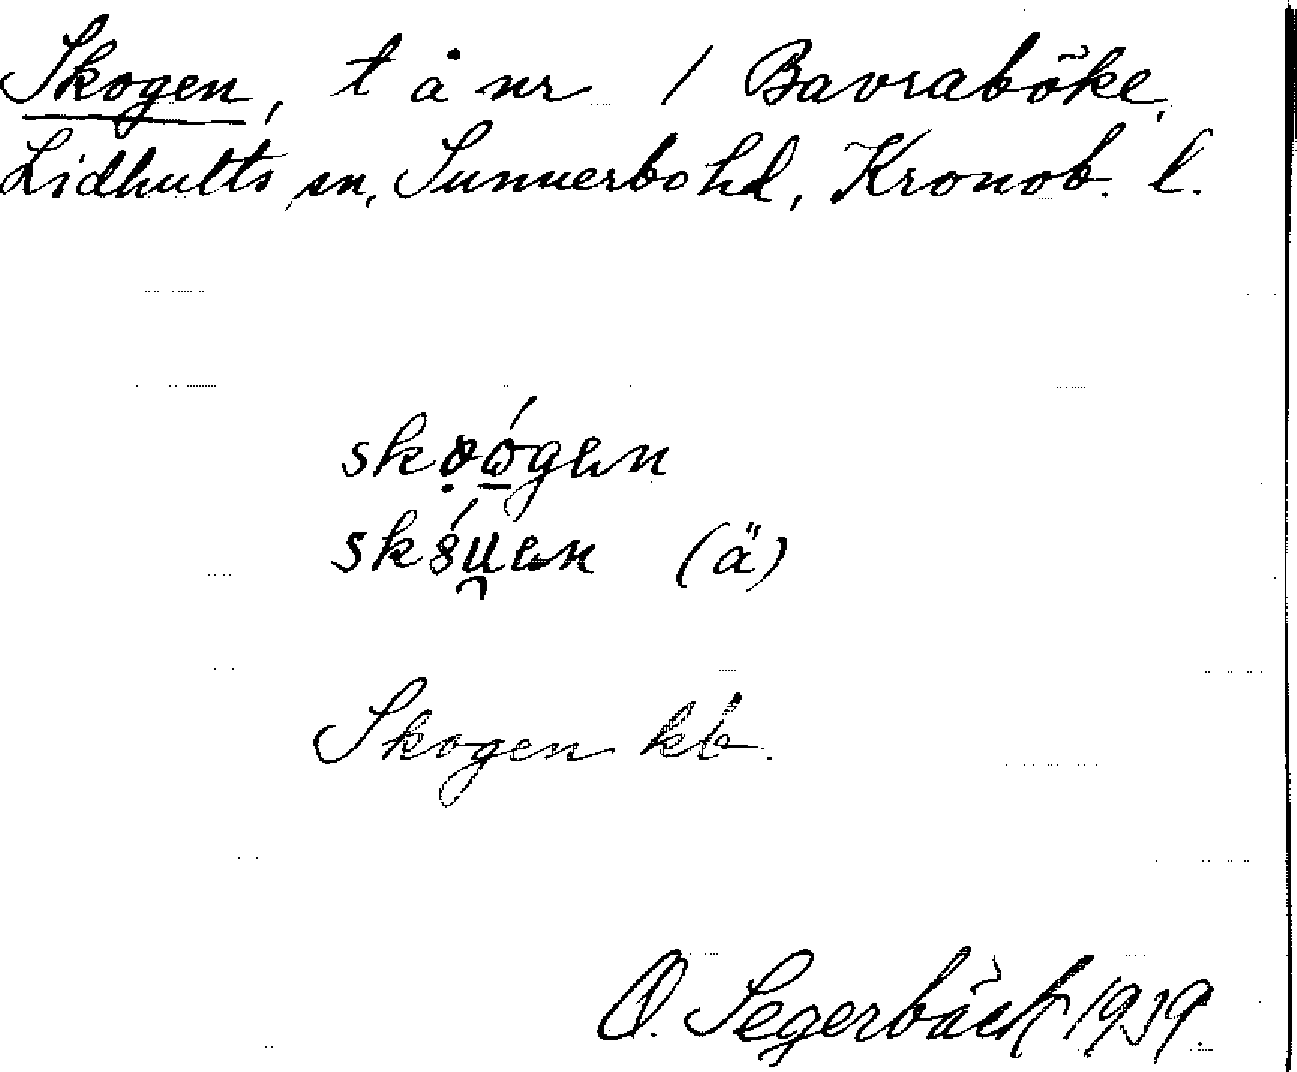 Skogen, t å nr 1 Bavraböke,
Lidhults sn, Sunnerbo hd, Kronob. l.
(ä)
Skogen kb.
O. Segerbäck 1939.